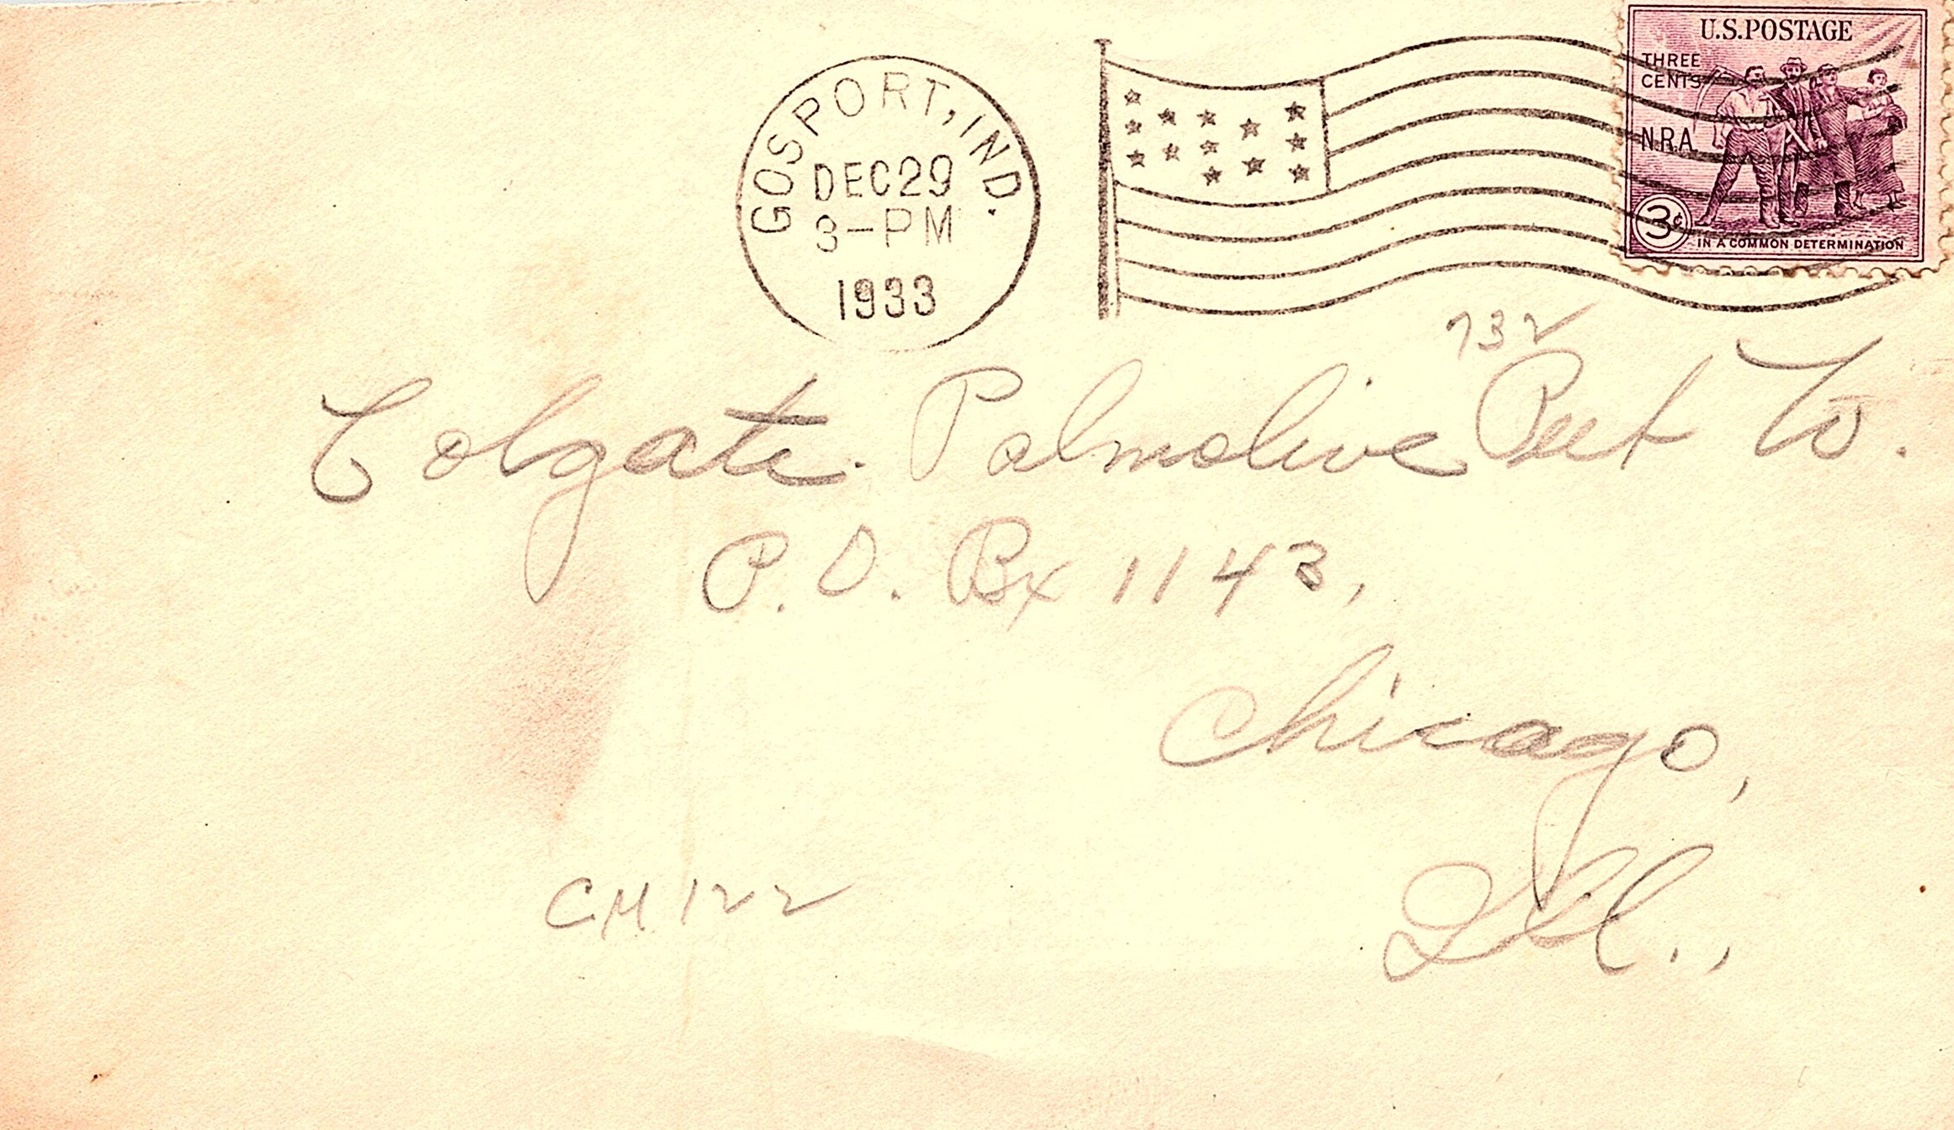 U.S.POSTAGE
THREE
CENTS
N.R.A.
3¢
IN A COMMON DETERMINATION
GOSPORT, IND.
DEC 29
3-PM
1933
732
Colgate. Palmolive Peet Co.
P.O. Bx 1143,
Chicago,
Ill.,
CM122